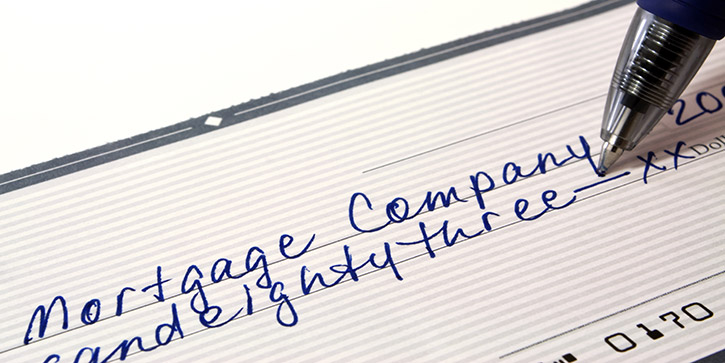 200
Mortgage Company
and eighty three — xx Doll
0170